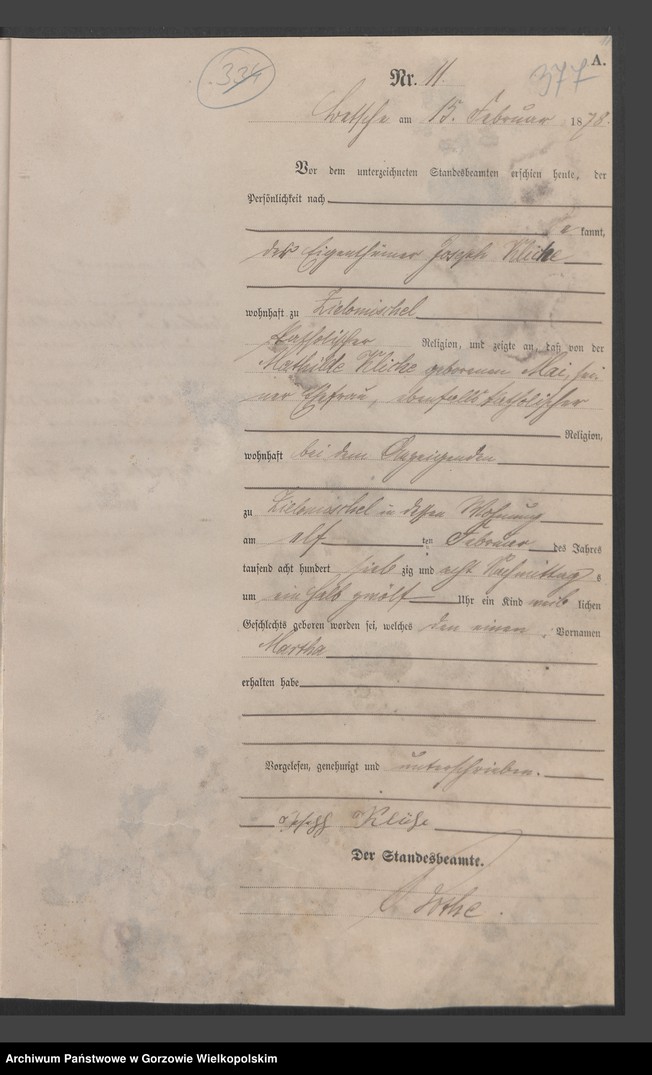 A.
334
377
Nr. 11.
Betsche am 15. Februar 1878.
Vor dem unterzeichneten Standesbeamten erschien heute, der
Persönlichkeit nach
e kannt,
der Eigenthümer Joseph Kliche
wohnhaft zu Zielomischel
katholischer Religion, und zeigte an, daß von der
Mathilde Kliche geborenen Mai, sei
ner Ehefrau, ebenfalls katholischer
Religion,
wohnhaft bei dem Anzeigenden
zu Zielomischel in dessen Wohnung
am elf ten Februar des Jahres
tausend acht hundert sieb zig und acht Nachmittag s
um ein halb zwölf Uhr ein Kind weib lichen
Geschlechts geboren worden sei, welches den einen Vornamen
Martha
erhalten habe
Vorgelesen, genehmigt und unterschrieben.
Klishe
Der Standesbeamte.